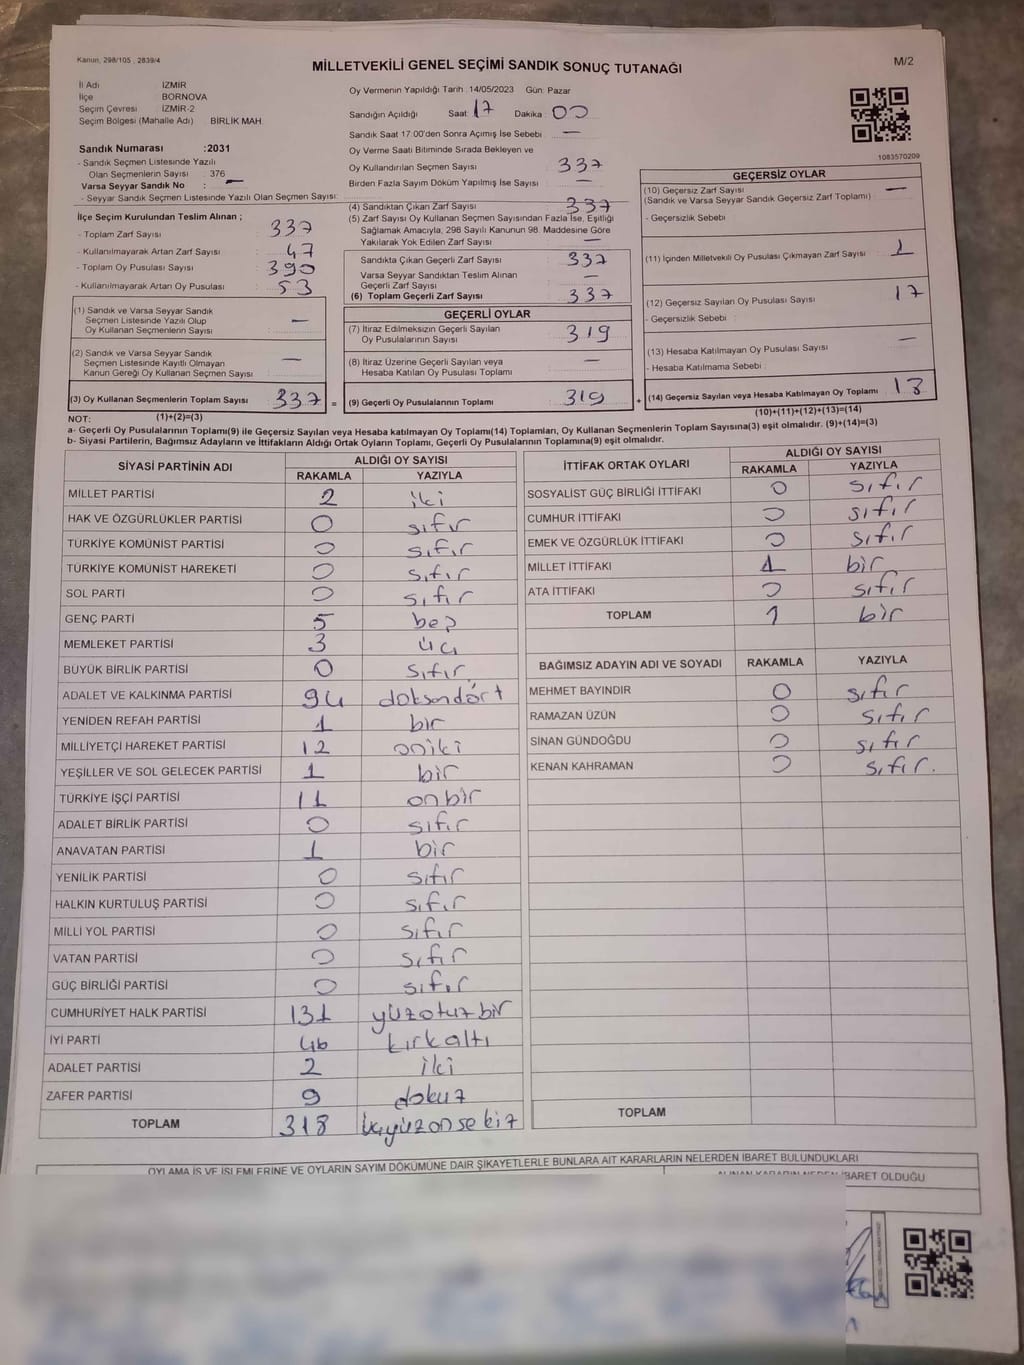 Kanun, 298/105, 2839/4
MİLLETVEKİLİ GENEL SEÇİMİ SANDIK SONUÇ TUTANAĞI
M/2
İl Adı İZMİR
İlçe BORNOVA
Seçim Çevresi İZMİR-2
Seçim Bölgesi (Mahalle Adı) BİRLİK MAH.
Oy Vermenin Yapıldığı Tarih :14/05/2023 Gün: Pazar
Sandığın Açıldığı Saat: 17 Dakika 00
Sandık Saat 17.00'den Sonra Açımış İse Sebebi : —
Sandık Numarası :2031
- Sandık Seçmen Listesinde Yazılı
Olan Seçmenlerin Sayısı : 376
Varsa Seyyar Sandık No : —
- Seyyar Sandık Seçmen Listesinde Yazılı Olan Seçmen Sayısı:
Oy Verme Saati Bitiminde Sırada Bekleyen ve
Oy Kullandırılan Seçmen Sayısı : 337
Birden Fazla Sayım Döküm Yapılmış İse Sayısı : —
1083570209
İlçe Seçim Kurulundan Teslim Alınan ;
- Toplam Zarf Sayısı : 337
- Kullanılmayarak Artan Zarf Sayısı : 47
- Toplam Oy Pusulası Sayısı : 390
- Kullanılmayarak Artan Oy Pusulası : 53
(1) Sandık ve Varsa Seyyar Sandık
Seçmen Listesinde Yazılı Olup
Oy Kullanan Seçmenlerin Sayısı : —
(2) Sandık ve Varsa Seyyar Sandık
Seçmen Listesinde Kayıtlı Olmayan
Kanun Gereği Oy Kullanan Seçmen Sayısı : —
(3) Oy Kullanan Seçmenlerin Toplam Sayısı : 337 =
(1)+(2)=(3)
(4) Sandıktan Çıkan Zarf Sayısı : 337
(5) Zarf Sayısı Oy Kullanan Seçmen Sayısından Fazla İse, Eşitliği
Sağlamak Amacıyla, 298 Sayılı Kanunun 98. Maddesine Göre
Yakılarak Yok Edilen Zarf Sayısı : —
Sandıkta Çıkan Geçerli Zarf Sayısı : 337
Varsa Seyyar Sandıktan Teslim Alınan
Geçerli Zarf Sayısı : —
(6) Toplam Geçerli Zarf Sayısı : 337
GEÇERLİ OYLAR
(7) İtiraz Edilmeksizin Geçerli Sayılan
Oy Pusulalarının Sayısı : 319
(8) İtiraz Üzerine Geçerli Sayılan veya
Hesaba Katılan Oy Pusulası Toplamı : —
(9) Geçerli Oy Pusulalarının Toplamı : 319 +
GEÇERSİZ OYLAR
(10) Geçersiz Zarf Sayısı : —
(Sandık ve Varsa Seyyar Sandık Geçersiz Zarf Toplamı)
- Geçersizlik Sebebi :
(11) İçinden Milletvekili Oy Pusulası Çıkmayan Zarf Sayısı : 1
(12) Geçersiz Sayılan Oy Pusulası Sayısı : 17
- Geçersizlik Sebebi :
(13) Hesaba Katılmayan Oy Pusulası Sayısı : —
- Hesaba Katılmama Sebebi :
(14) Geçersiz Sayılan veya Hesaba Katılmayan Oy Toplamı : 18
(10)+(11)+(12)+(13)=(14)
NOT:
a- Geçerli Oy Pusulalarının Toplamı(9) ile Geçersiz Sayılan veya Hesaba katılmayan Oy Toplamı(14) Toplamları, Oy Kullanan Seçmenlerin Toplam Sayısına(3) eşit olmalıdır. (9)+(14)=(3)
b- Siyasi Partilerin, Bağımsız Adayların ve İttifakların Aldığı Ortak Oyların Toplamı, Geçerli Oy Pusulalarının Toplamına(9) eşit olmalıdır.
SİYASİ PARTİNİN ADI
ALDIĞI OY SAYISI
RAKAMLA YAZIYLA
MİLLET PARTİSİ 2 iki
HAK VE ÖZGÜRLÜKLER PARTİSİ 0 sıfır
TÜRKİYE KOMÜNİST PARTİSİ 0 sıfır
TÜRKİYE KOMÜNİST HAREKETİ 0 sıfır
SOL PARTİ 0 sıfır
GENÇ PARTİ 5 beş
MEMLEKET PARTİSİ 3 üç
BÜYÜK BİRLİK PARTİSİ 0 sıfır
ADALET VE KALKINMA PARTİSİ 94 doksandört
YENİDEN REFAH PARTİSİ 1 bir
MİLLİYETÇİ HAREKET PARTİSİ 12 oniki
YEŞİLLER VE SOL GELECEK PARTİSİ 1 bir
TÜRKİYE İŞÇİ PARTİSİ 11 onbir
ADALET BİRLİK PARTİSİ 0 sıfır
ANAVATAN PARTİSİ 1 bir
YENİLİK PARTİSİ 0 sıfır
HALKIN KURTULUŞ PARTİSİ 0 sıfır
MİLLİ YOL PARTİSİ 0 sıfır
VATAN PARTİSİ 0 sıfır
GÜÇ BİRLİĞİ PARTİSİ 0 sıfır
CUMHURİYET HALK PARTİSİ 131 yüzotuzbir
İYİ PARTİ 46 kırkaltı
ADALET PARTİSİ 2 iki
ZAFER PARTİSİ 9 dokuz
TOPLAM 318 üçyüzonsekiz
İTTİFAK ORTAK OYLARI
ALDIĞI OY SAYISI
RAKAMLA YAZIYLA
SOSYALİST GÜÇ BİRLİĞİ İTTİFAKI 0 sıfır
CUMHUR İTTİFAKI 0 sıfır
EMEK VE ÖZGÜRLÜK İTTİFAKI 0 sıfır
MİLLET İTTİFAKI 1 bir
ATA İTTİFAKI 0 sıfır
TOPLAM 1 bir
BAĞIMSIZ ADAYIN ADI VE SOYADI RAKAMLA YAZIYLA
MEHMET BAYINDIR 0 sıfır
RAMAZAN ÜZÜN 0 sıfır
SİNAN GÜNDOĞDU 0 sıfır
KENAN KAHRAMAN 0 sıfır.
TOPLAM
OYLAMA İŞ VE İŞLEMLERİNE VE OYLARIN SAYIM DÖKÜMÜNE DAİR ŞİKAYETLERLE BUNLARA AİT KARARLARIN NELERDEN İBARET BULUNDUKLARI
ALINAN KARARIN NEDEN İBARET OLDUĞU